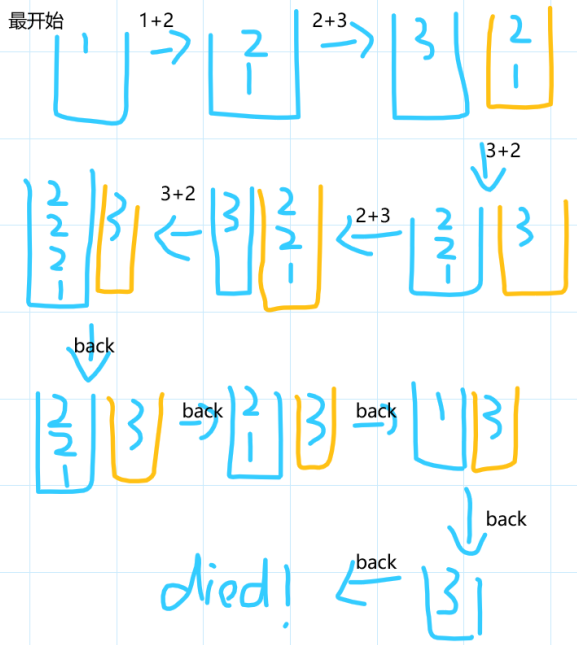 最开始 1+2 2+3
1 2 3 2
1 1
3+2
2 3 3+2 3 2 2+3 2 3
2 2 2
2 1 1
1
back
2 3 back 2 3 back 1 3
2 1
1
back
died! back 3